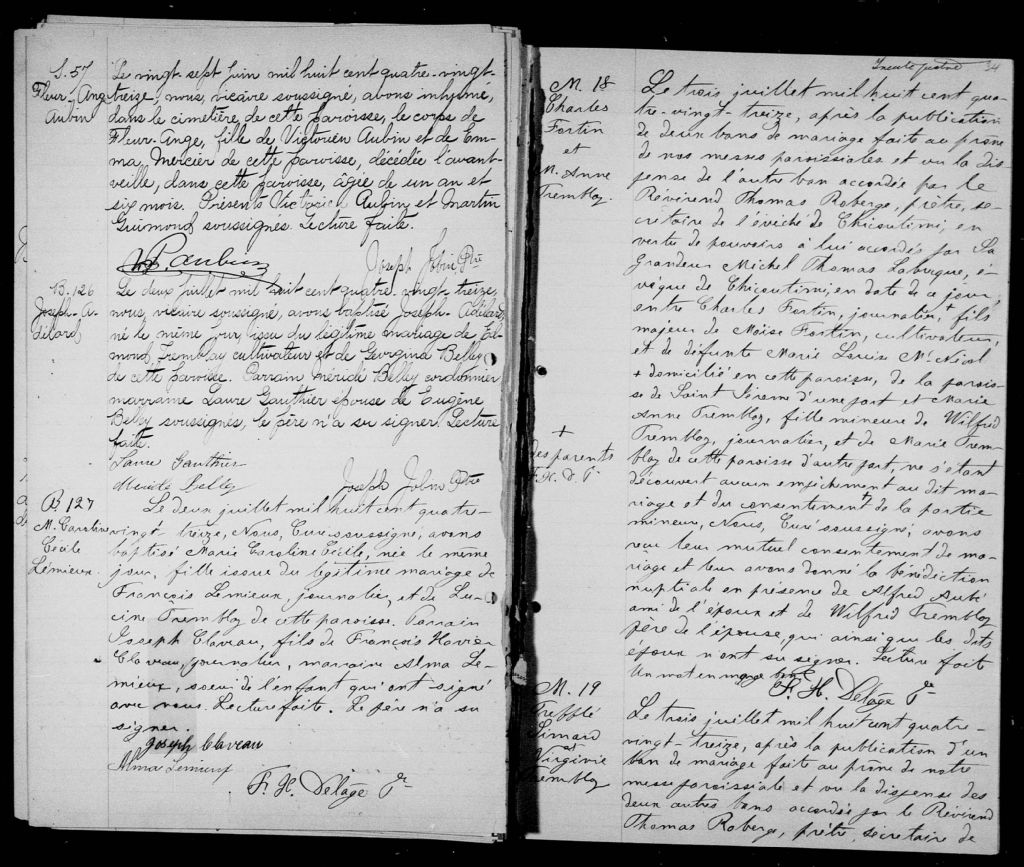 S. 57
Fleur-Ange
Aubin
Le vingt-sept juin mil huit cent quatre-vingt-
treize, nous, vicaire soussigné, avons inhumé,
dans le cimetière de cette paroisse, le corps de
Fleur-Ange, fille de Victorien Aubin et de Em-
ma Mercier de cette paroisse, décédée l'avant-
veille, dans cette paroisse, âgée de un an et
six mois. Présents Victorien Aubin et Martin
Guimond soussignés. Lecture faite.
V. P. Aubin
Joseph Ptre
B. 126
Joseph-A-
délard
Le deux juillet mil huit cent quatre vingt treize,
nous, vicaire soussigné, avons baptisé Joseph-Adélard,
né le même jour, issu du légitime mariage de Ed-
mond Tremblay cultivateur et de Georgina Belley
de cette paroisse. Parrain Méridé Belley cordonnier
marraine Laure Gauthier épouse de Eugène
Belley soussignés, le père n'a su signer. Lecture
faite.
Laure Gauthier
Belley
Joseph Ptre
B. 127
M. Caroline
Cécile
Lémieux
Le deux juillet mil huit cent quatre-
vingt-treize, Nous, Curé soussigné, avons
baptisé Marie Caroline Cécile, née le même
jour, fille issue du légitime mariage de
François Lemieux, journalier, et de Lu-
cine Tremblay de cette paroisse. Parrain
Joseph Claveau, fils de François Xavier
Claveau, journalier, marraine Alma Le-
mieux, soeur de l'enfant qui ont signé
avec nous. Lecture faite. Le père n'a su
signer.
Joseph Claveau
Alma Lemieux
F. H. Delâge Ptre
34
M. 18
Charles
Fortin
et
M. Anne
Tremblay.
Le trois juillet mil huit cent qua-
tre-vingt-treize, après la publication
de deux bans de mariage faite au prône
de nos messes paroissiales et vu la dis-
pense de l'autre ban accordée par le
Révérend Thomas Roberge, prêtre, se-
crétaire de l'évêché de Chicoutimi, en
vertu de pouvoirs à lui accordés par Sa
Grandeur Michel Thomas Labrecque, é-
vêque de Chicoutimi, en date de ce jour,
entre Charles Fortin, journalier, + fils
majeur de Moïse Fortin, cultivateur,
et de défunte Marie Louise McNicol
+ domicilié en cette paroisse, de la parois-
se de Saint Jérome d'une part et Marie
Anne Tremblay, fille mineure de Wilfrid
Tremblay, journalier, et de Marie Trem-
blay de cette paroisse d'autre part, ne s'étant
découvert aucun empêchement au dit ma-
riage et du consentement + de la partie
mineure, Nous, Curé soussigné, avons
reçu leur mutuel consentement de ma-
riage et leur avons donné la bénédiction
nuptiale en présence de Alfred Aubé
ami de l'époux et de Wilfrid Tremblay
père de l'épouse, qui ainsi que les dits
époux n'ont su signer. Lecture faite
Un mot en marge bon
F. H. Delâge Ptre
+
des parents
F. H. D. Ptre
M. 19
Trefflé
Simard
et
Virginie
Tremblay
Le trois juillet mil huit cent quatre-
vingt-treize, après la publication d'un
ban de mariage faite au prône de notre
messe paroissiale et vu la dispense des
deux autres bans accordée par le Révérend
Thomas Roberge, prêtre, secrétaire de